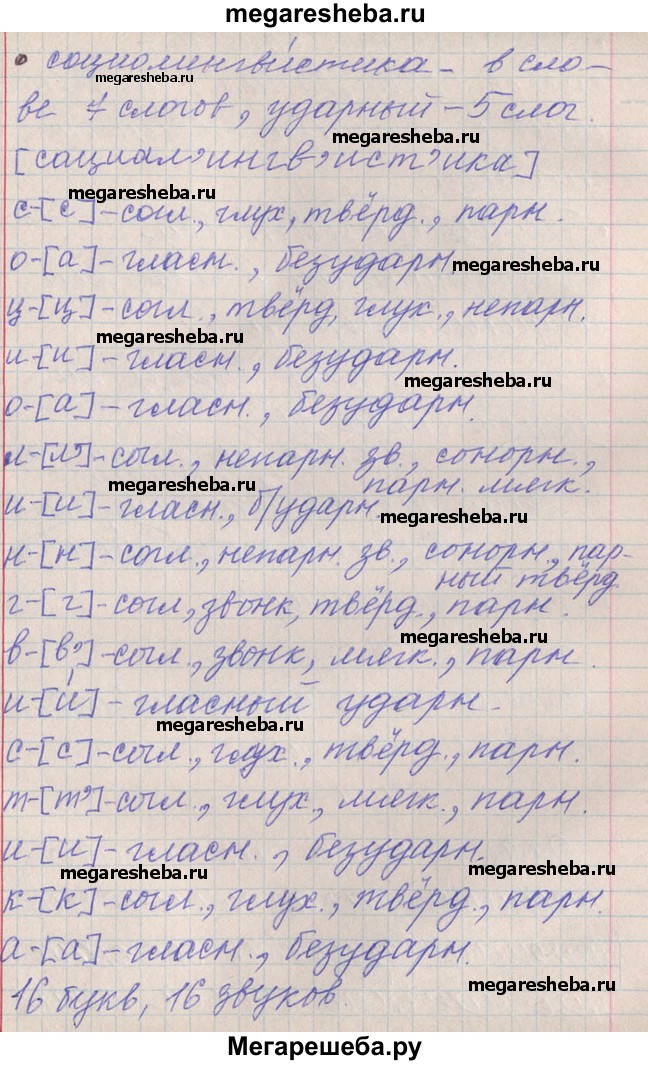 megaresheba.ru
социолингви́стика - в сло-
megaresheba.ru
ве 7 слогов, ударный - 5 слог.
megaresheba.ru
[социал'ингв'ист'ика]
megaresheba.ru
с-[с]-согл., глух, твёрд., парн.
о-[а]-гласн., безударн.
megaresheba.ru
ц-[ц]-согл., твёрд, глух., непарн.
megaresheba.ru
и-[и]-гласн., безударн.
megaresheba.ru
о-[а]-гласн., безударн.
л-[л']-согл., непарн. зв., сонорн.,
парн. мягк.
megaresheba.ru
и-[и]-гласн., б/ударн.
megaresheba.ru
н-[н]-согл., непарн зв., сонорн, пар-
ный твёрд
г-[г]-согл, звонк, твёрд., парн.
megaresheba.ru
в-[в']-согл., звонк, мягк., парн.
и-[и́]-гласный ударн.
megaresheba.ru
с-[с]-согл., глух., твёрд., парн.
т-[т']-согл., глух, мягк., парн.
и-[и]-гласн., безударн.
megaresheba.ru
megaresheba.ru
к-[к]-согл., глух., твёрд., парн.
а-[а]-гласн., безударн.
megaresheba.ru
16 букв, 16 звуков.
Мегарешеба.ру